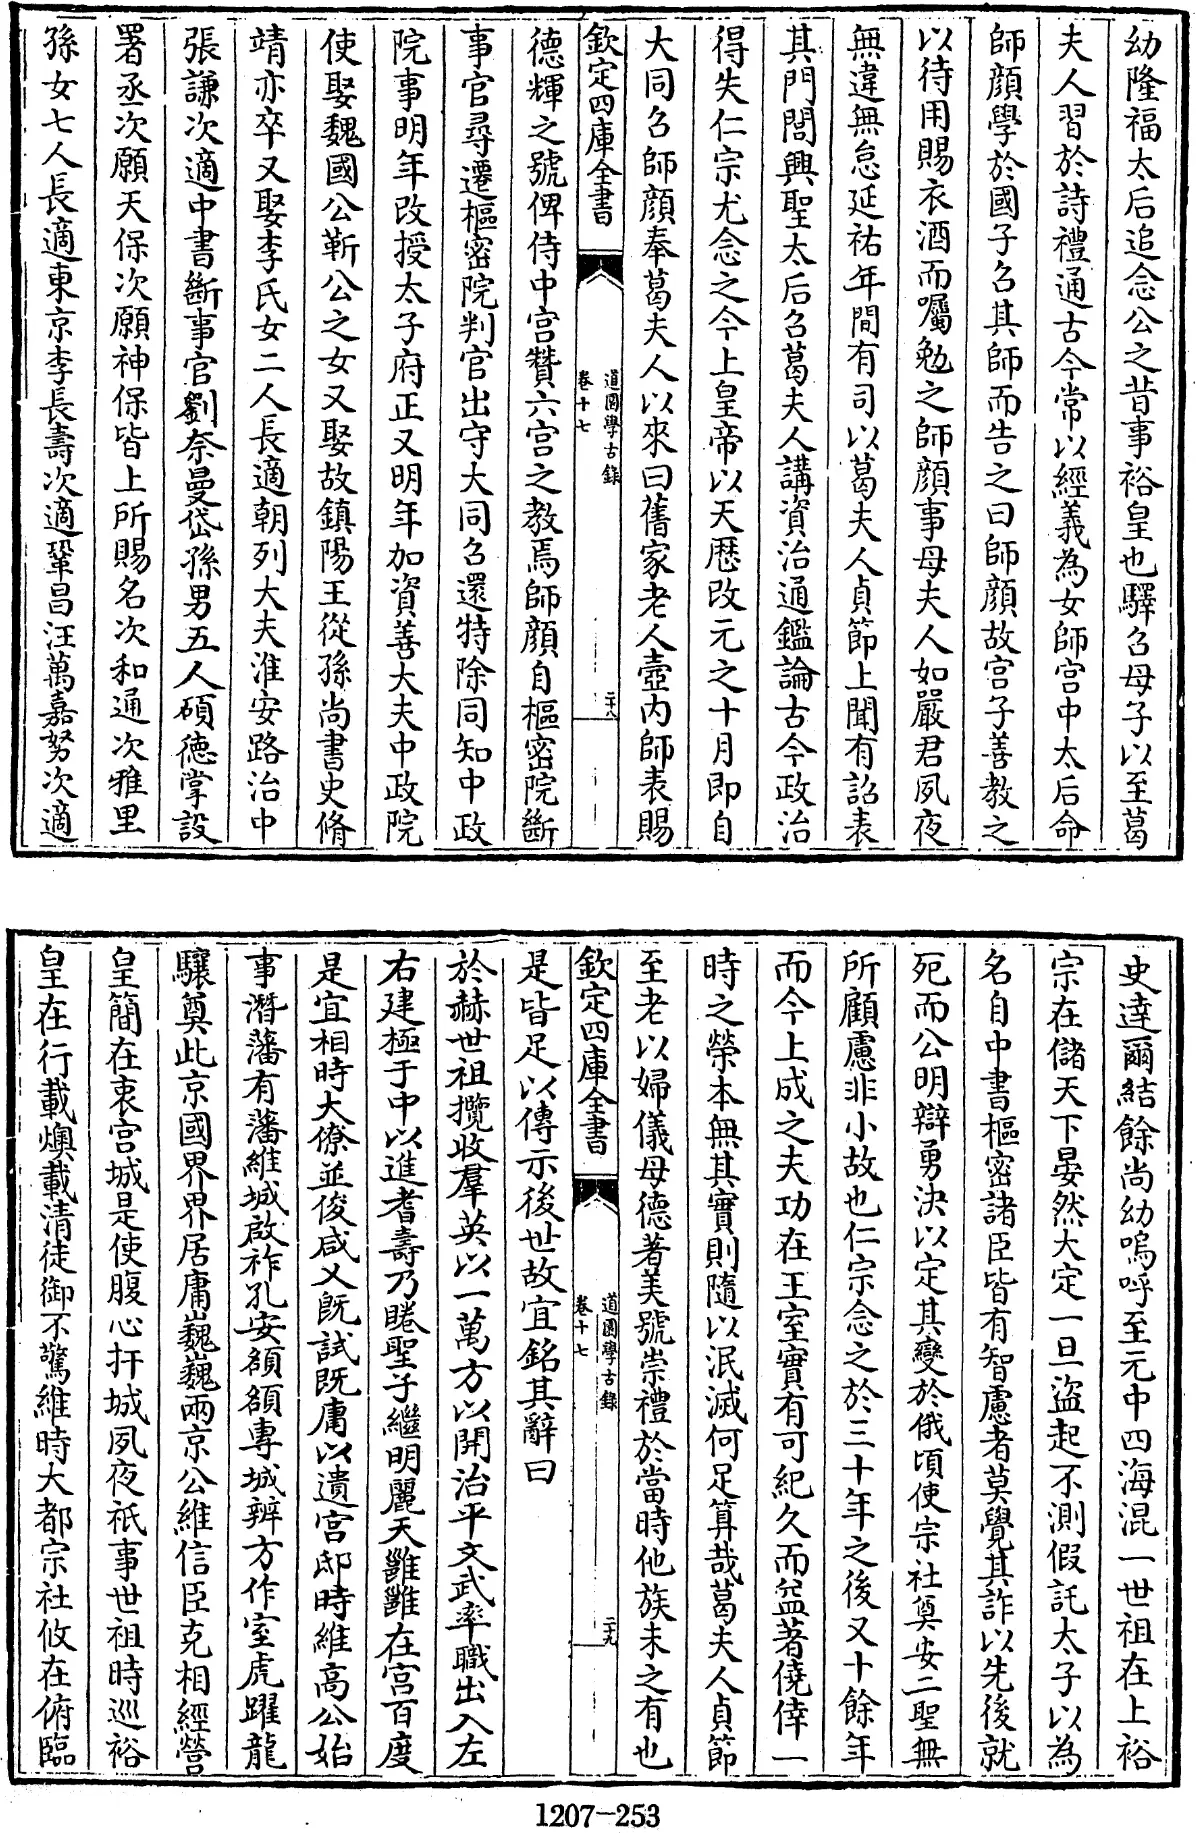 幼隆福太后追念公之昔事裕皇也驛召母子以至葛
夫人習於詩禮通古今常以經義為女師宫中太后命
師顔學於國子召其師而告之曰師顔故宫子善教之
以待用賜衣酒而囑勉之師顔事母夫人如嚴君夙夜
無違無怠延祐年間有司以葛夫人貞節上聞有詔表
其門閭興聖太后召葛夫人講資治通鑑論古今政治
得失仁宗尤念之今上皇帝以天歴改元之十月即自
大同召師顔奉葛夫人以來曰舊家老人壼内師表賜
欽定四庫全書
道園學古錄
卷十七
二十八
德輝之號俾侍中宫贊六宫之教焉師顔自樞密院斷
事官尋遷樞密院判官出守大同召還特除同知中政
院事明年改授太子府正又明年加資善大夫中政院
使娶魏國公靳公之女又娶故鎮陽王從孫尚書史脩
靖亦卒又娶李氏女二人長適朝列大夫淮安路治中
張謙次適中書斷事官劉奈曼岱孫男五人碩德掌設
署丞次願天保次願神保皆上所賜名次和通次雅里
孫女七人長適東京李長壽次適鞏昌汪萬嘉努次適
史達爾結餘尚幼嗚呼至元中四海混一世祖在上裕
宗在儲天下晏然大定一旦盜起不測假託太子以為
名自中書樞密諸臣皆有智慮者莫覺其詐以先後就
死而公明辯勇決以定其變於俄頃使宗社奠安二聖無
所顧慮非小故也仁宗念之於三十年之後又十餘年
而今上成之夫功在王室實有可紀久而益著僥倖一
時之榮本無其實則隨以泯滅何足算哉葛夫人貞節
至老以婦儀母德著美號崇禮於當時他族未之有也
欽定四庫全書
道園學古錄
卷十七
二十九
是皆足以傳示後世故宜銘其辭曰
於赫世祖攬收羣英以一萬方以開治平文武率職出入左
右建極于中以進耆壽乃睠聖子繼明麗天雝雝在宫百度
是宜相時大僚並俊咸乂既試既庸以遺宫邸時維高公始
事潛藩有藩維城啟祚孔安額額專城辨方作室虎躍龍
驤奠此京國界界居庸巍巍兩京公維信臣克相經營
皇簡在衷宫城是使腹心扞城夙夜祇事世祖時巡裕
皇在行載燠載清徒御不驚維時大都宗社攸在俯臨
1207-253